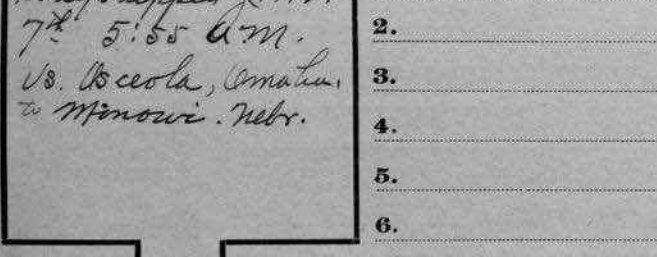 7th 5:55 A.M.
Osceola, Omaha,
to Minowi. Nebr.
2.
3.
4.
5.
6.